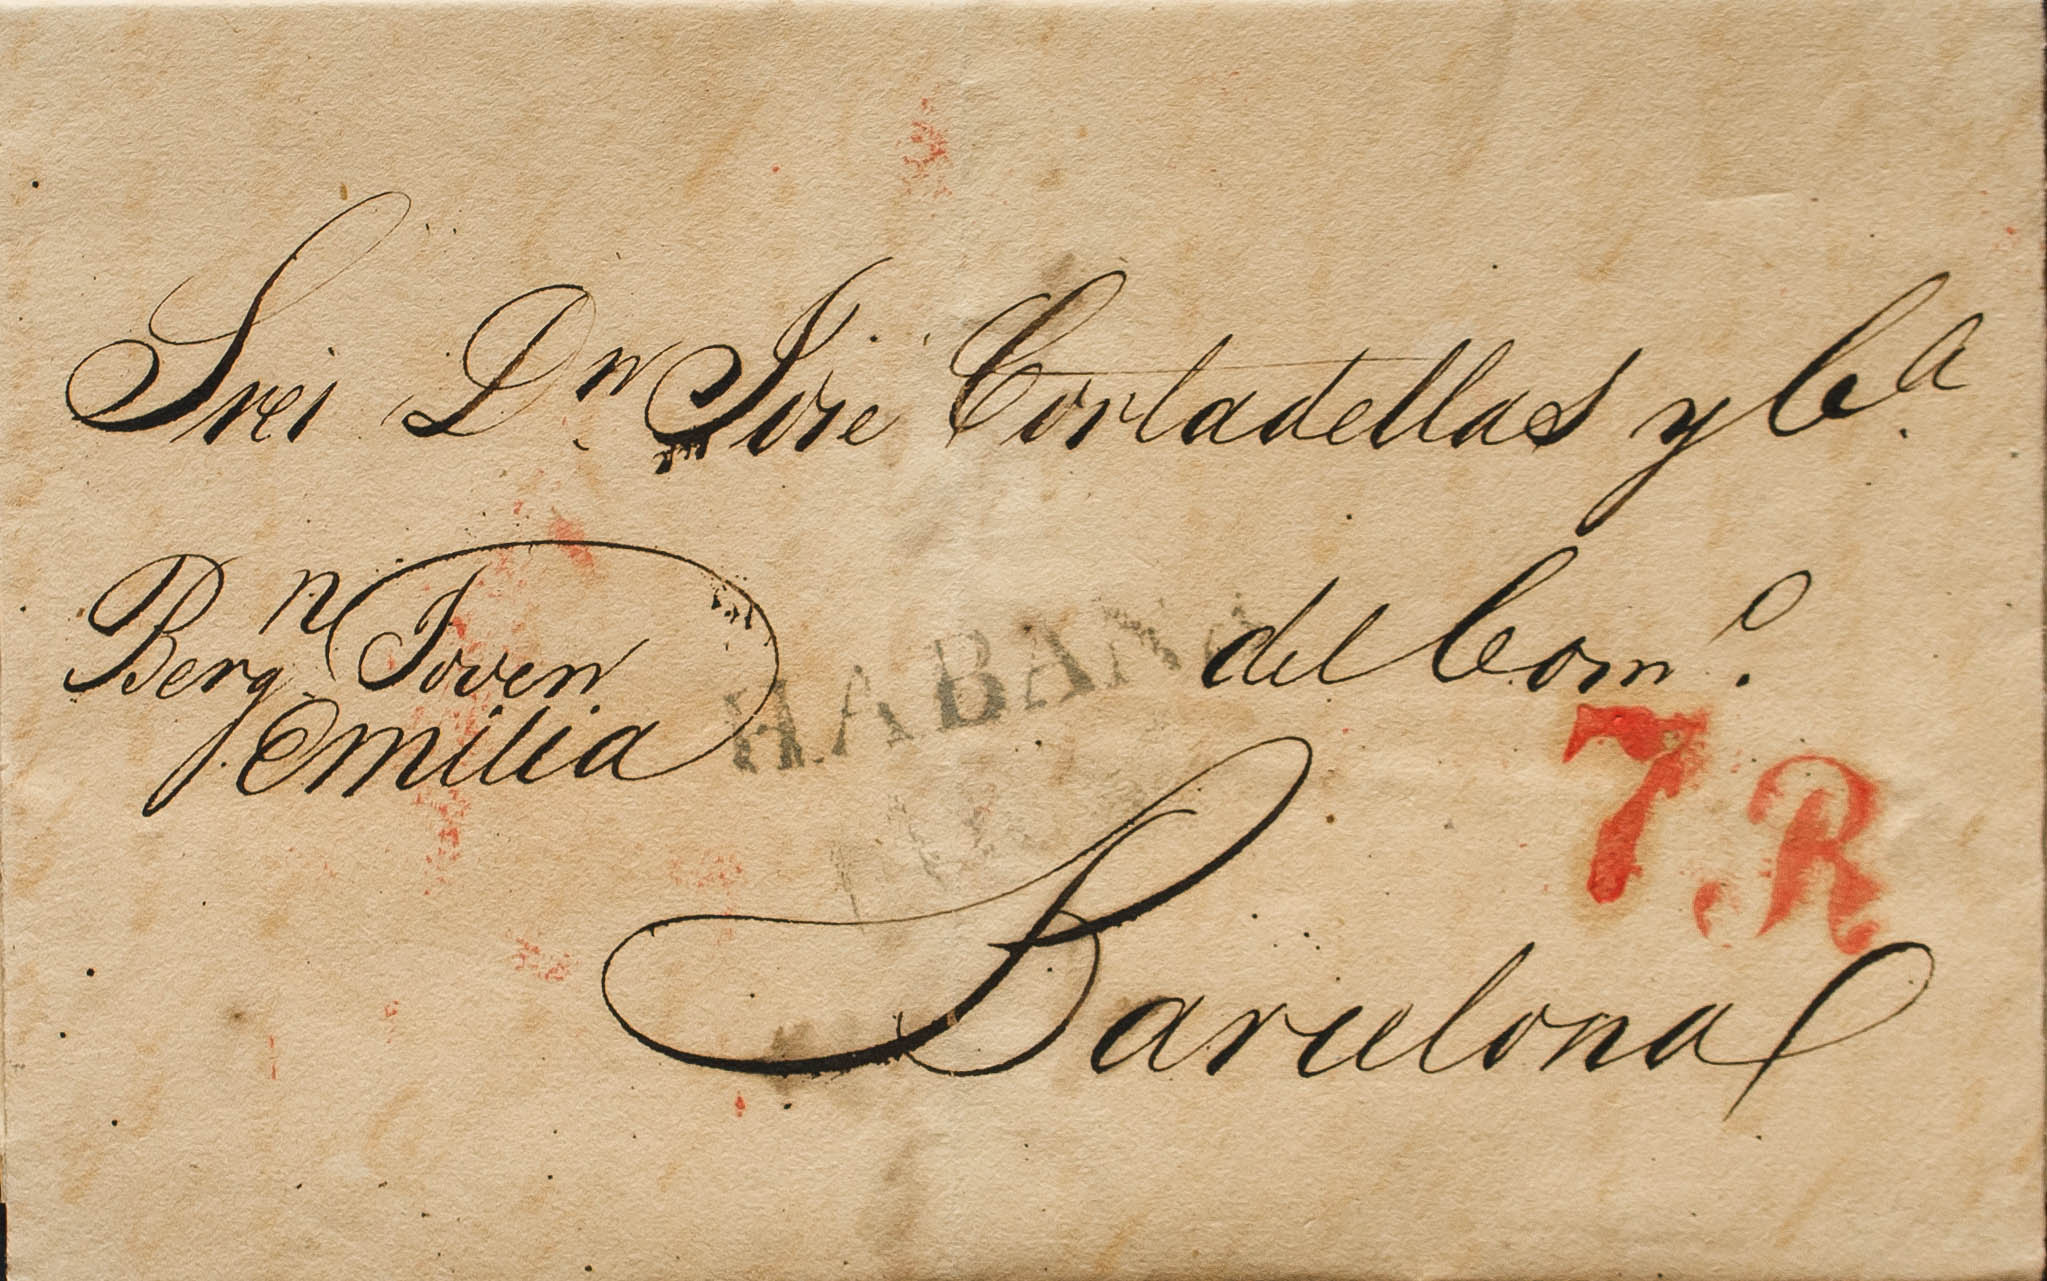 Sres Dn. José Cortadellas y Ca.
Bergn. Joven
Emilia
HABANA
del Como.
7 R
Barcelona